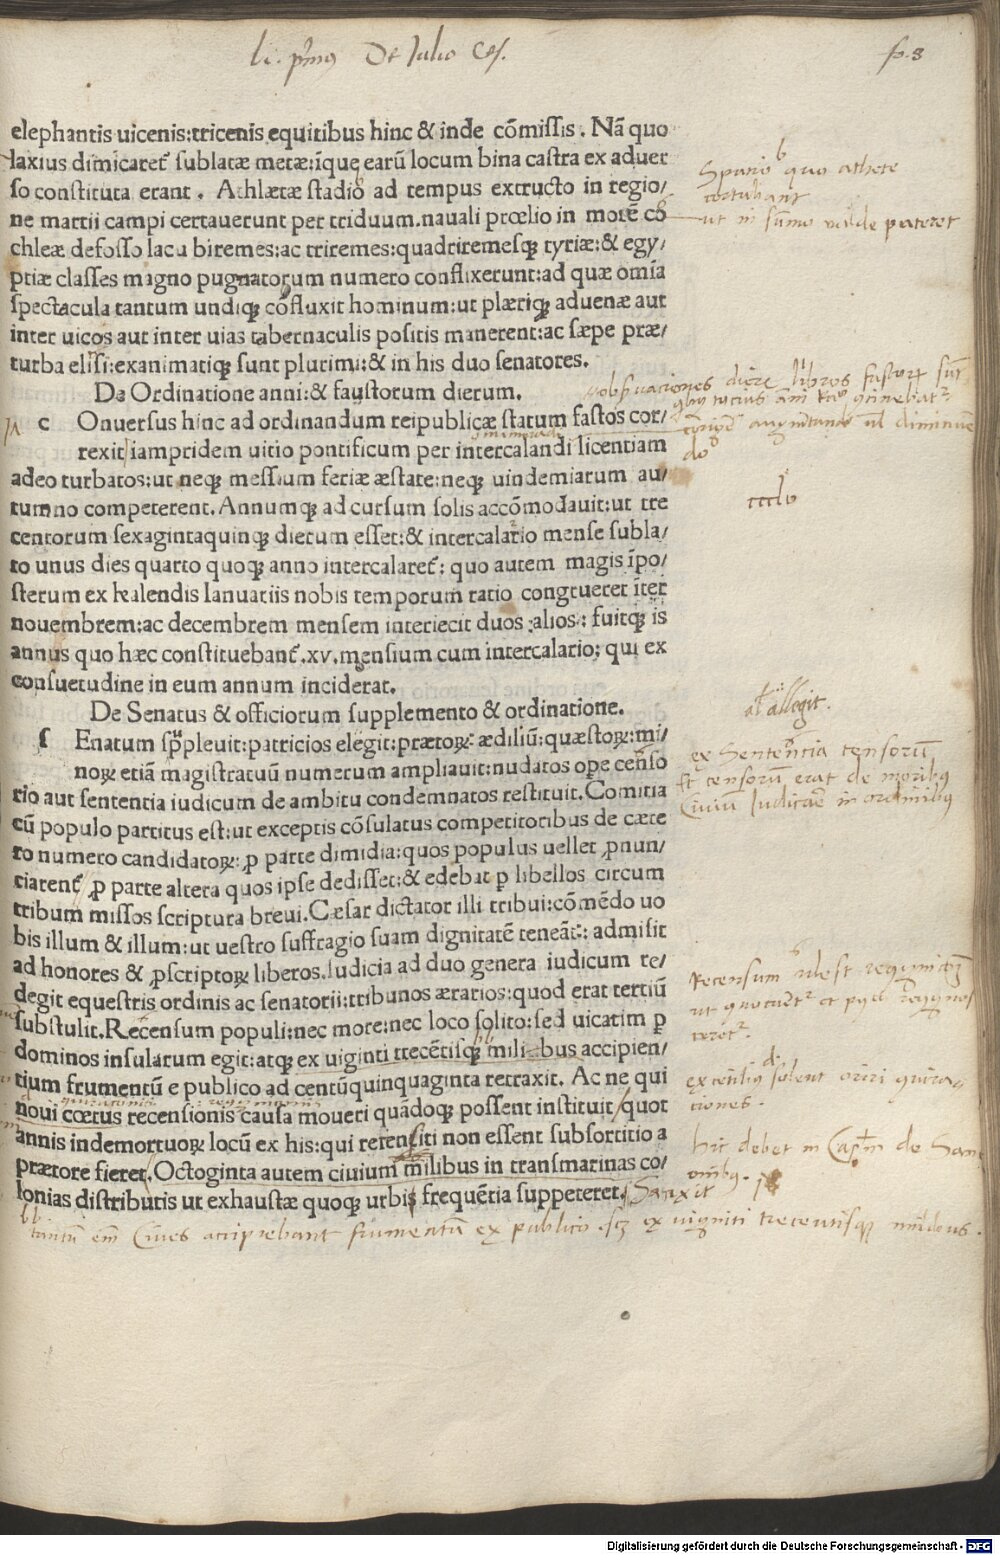 li. prim9 De Iulio Ces.
fo. 8
elephantis uicenis: tricenis equitibus hinc & inde cõmissis. Nã quo
laxius dimicaret᷑ sublatæ metæ: ĩque earũ locum bina castra ex aduer
so constituta erant. Athlætæ stadio ad tempus extructo in regio/
ne martii campi certauerunt per triduum. nauali prœlio in morẽ co
chleæ defosso lacu biremes: ac triremes: quadriremesqꝫ tyriæ: & egy/
ptiæ classes magno pugnatorum numero conflixerunt: ad quæ omĩa
spectacula tantum undiqꝫ cõfluxit hominum: ut plæriqꝫ aduenæ aut
inter uicos aut inter uias tabernaculis positis manerent: ac sæpe præ/
turba elisi: exanimatiqꝫ sunt plurimi: & in his duo senatores.
De Ordinatione anni: & faustorum dierum.
c Onuersus hinc ad ordinandum reipublicæ statum fastos cor/
rexit iampridem uitio pontificum per intercalandi licentiam
adeo turbatos: ut neqꝫ messium feriæ æstate: neqꝫ uindemiarum au/
tumno competerent. Annumqꝫ ad cursum solis accõmodauit: ut tre
centorum sexagintaquinqꝫ dierum esset: & intercalario mense subla/
to unus dies quarto quoqꝫ anno intercalaret᷑: quo autem magis ĩpo/
sterum ex kalendis Ianuariis nobis temporum ratio congrueret ĩter
nouembrem: ac decembrem mensem interiecit duos alios: fuitqꝫ is
annus quo hæc constituebant᷑. xv. mensium cum intercalario: qui ex
consuetudine in eum annum inciderat.
De Senatus & officiorum supplemento & ordinatione.
ſ Enatum sṗpleuit: patricios elegit: prætoꝝ: ædiliũ: quæstoꝝ: mi/
noꝝ etiã magistratuũ numerum ampliauit: nudatos ope censo
rio aut sententia iudicum de ambitu condemnatos restituit. Comitia
cũ populo partitus est: ut exceptis cõsulatus competitoribus de cæte
ro numero candidatoꝝ: ꝓ parte dimidia: quos populus uellet ꝓnun/
tiarent᷑ ꝓ parte altera quos ipse dedisset: & edebat ꝑ libellos circum
tribum missos scriptura breui. Cæsar dictator illi tribui: cõmẽdo uo
bis illum & illum: ut uestro suffragio suam dignitatẽ teneãt: admisit
ad honores & ꝓscriptoꝝ liberos. Iudicia ad duo genera iudicum re/
degit equestris ordinis ac senatorii: tribunos ærarios: quod erat tertiũ
substulit. Recensum populi: nec more: nec loco solito: sed uicatim ꝑ
dominos insularum egit: atqꝫ ex uiginti trecẽtisqꝫ milibus accipien/
tium frumentũ e publico ad centũquinquaginta retraxit. Ac ne qui
noui cœtus recensionis causa moueri quãdoqꝫ possent instituit quot
annis indemortuoꝝ locũ ex his: qui retensiti non essent subsortitio a
prætore fieret. Octoginta autem ciuium milibus in transmarinas co/
lonias distributis ut exhaustæ quoqꝫ urbis frequẽtia suppeteret. Sanxit
Spatio quo athlete
certabant
ut in sũmo valde pateret
ccclv
al' allegit.
ex Sententia censorũ
Et censorũ erat de moribꝰ
Ciuiũ Iudicare in ordinibꝰ
Recensum id est
hic debet in Cap̃m de
tantũ em̃ Ciues accipiebant frumentũ ex publico. sꝫ ex viginti trecentisqꝫ milibus.
Digitalisierung gefördert durch die Deutsche Forschungsgemeinschaft - DFG